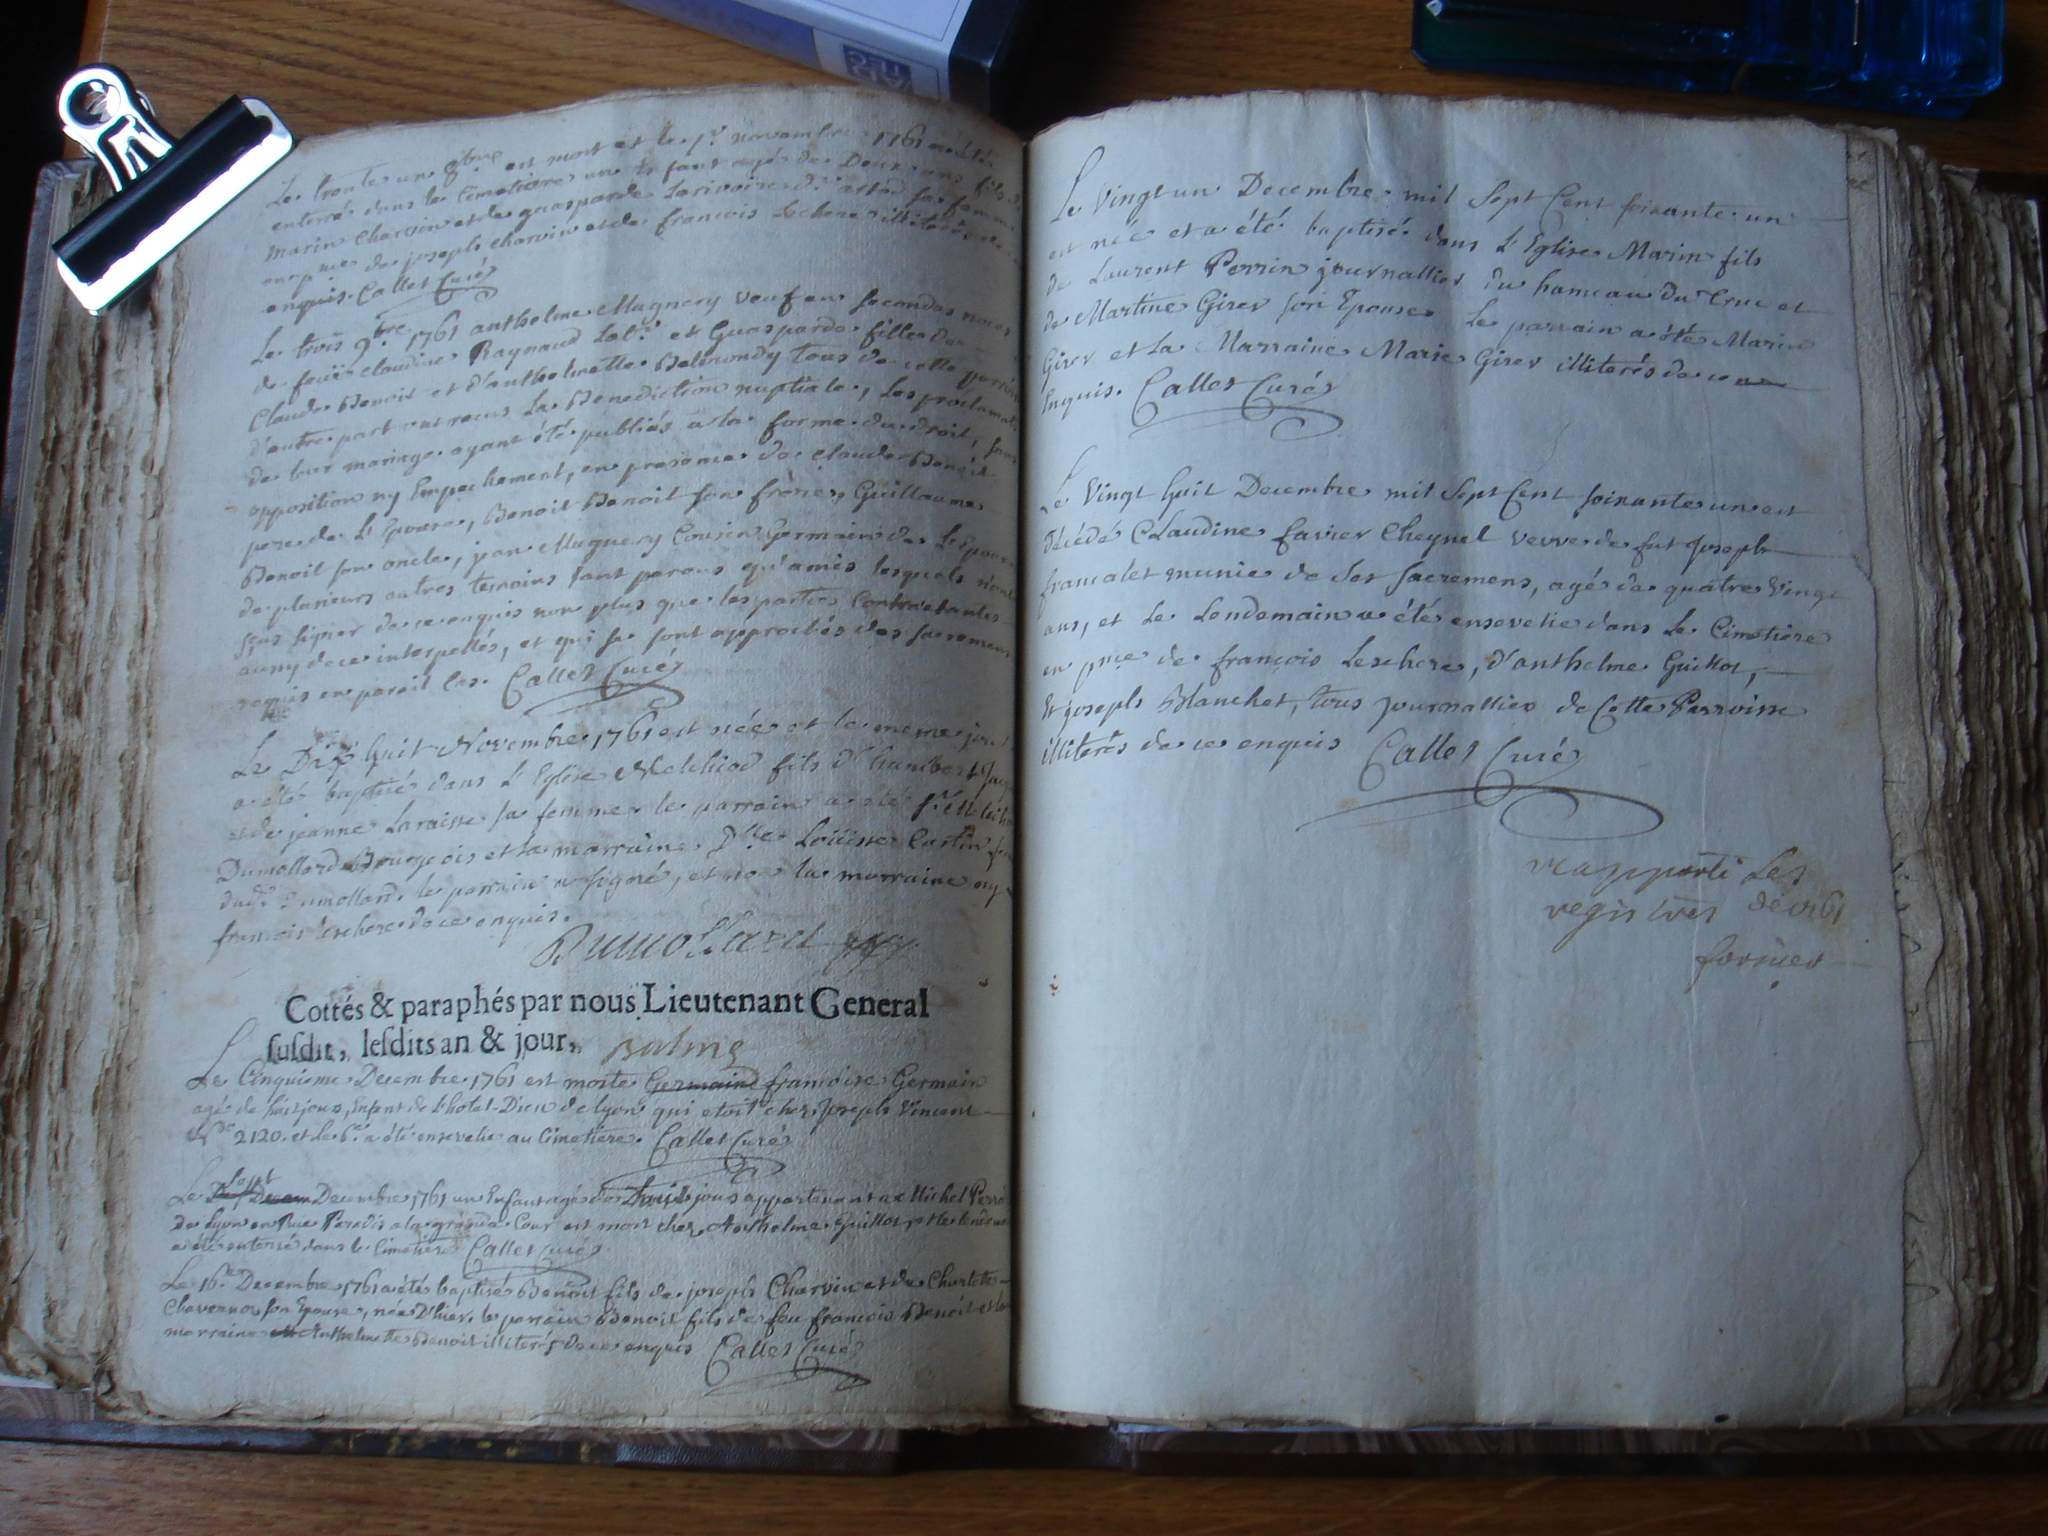 Le trente un 8bre est mort et le 1r novembre 1761 a été
enterré dans le Cimetiere un Enfant agé de Deux ans fils de
Marin Charvin et de Gasparde Larivoire sa femme
en pnce de joseph charvin et de francois Lechere illiterés de ce
enquis. Callet Curé
Le trois 9bre 1761 anthelme Mugnery veuf en secondes noces
de feüe claudine Raynaud Lab.r et Guasparde fille de
Claude Benoit et d'anthelmette Belmondy tous de cette parroisse
d'autre part ont recus La Benediction nuptiale, Les proclamat.
de leur mariage ayant été publiés a la forme du droit, sans
opposition ny Empechement, en presence de claude Benoit
pere de l'Epouse, Benoit Benoit son frere, Guillaume
Benoit son oncle, jean Mugnery Cousin Germain de l'Epoux
de plusieurs autres temoins tant parens qu'amis lesquels n'ont
sçus signer de ce enquis non plus que les parties Contractantes
aussy de ce interpellés, et qui se sont approchés des sacremens
requis en pareil cas. Callet Curé
Le Dix huit Novembre 1761 est née et le meme jour
a été baptisé dans L'Eglise Melchiod fils d'humbert
et de jeanne Laraisse sa femme le parrain a été sr Melch
Dumollard Bourgeois et la marraine Dlle Loüisse Castin
dud. Dumollard. le parrain a signé, et non la marraine ny
francois Lechere de ce enquis.
Dumollard
Cottés & paraphés par nous Lieutenant General
susdit, lesdits an & jour, Balme
Le Cinquieme Decembre 1761 est morte Germaine francoise Germain
agé de huit jours, Enfent de l'hotel-Dieu de lyon qui etoit chez Joseph Vincent
2120. et le 6e a été ensevelie au Cimetiere. Callet Curé
Le Sept Decembre 1761 un Enfant agé de huit jours appartenant a Michel Perra
De Lyon en Rue Paradis a la grande Cour est mort chez Anthelme Guillot, et le lendemain
a été enterré dans le Cimetiere Callet Curé
Le 16e Decembre 1761 a été baptisé Benoit fils de joseph Charvin et de Charlotte
Chavannos son Epouse, née D'hier. le parrain Benoit fils de feu francois Benoit et la
marraine Anthelmette Benoit illiterés de ce enquis Callet Curé
Le Vingt un Decembre mil Sept Cent soixante un
est née et a été baptisé dans L'Eglise Marin fils
de Laurent Perrin journallier du hameau du Cruc et
de Martine Girer son Epouse Le parrain a été Marin
Girer et La Marraine Marie Girer illiterés de ce
Enquis. Callet Curé
Le Vingt huit Decembre mil Sept Cent soixante un est
décédé Claudine favier Cheynel veuve de fut Joseph
francalet munie de ses sacremens, agé de quatre Vingt
ans, et Le Lendemain a été ensevelie dans Le Cimetiere
en pnce de françois Leschere, d'anthelme Guillot,
Et joseph Blanchet, tous journallier de Cette Parroisse
illiterés de ce enquis Callet Curé
reapporté Les
registres de 1761